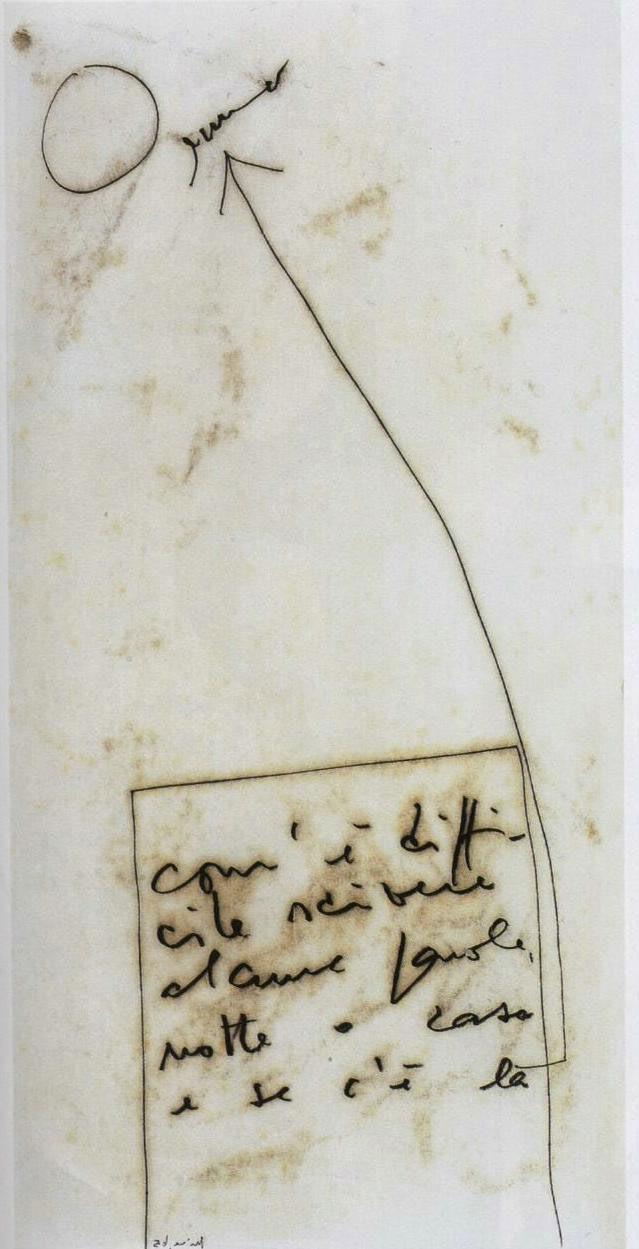 com'è diffi-
cile scrivere
alcune parole,
notte o casa
e se c'è la